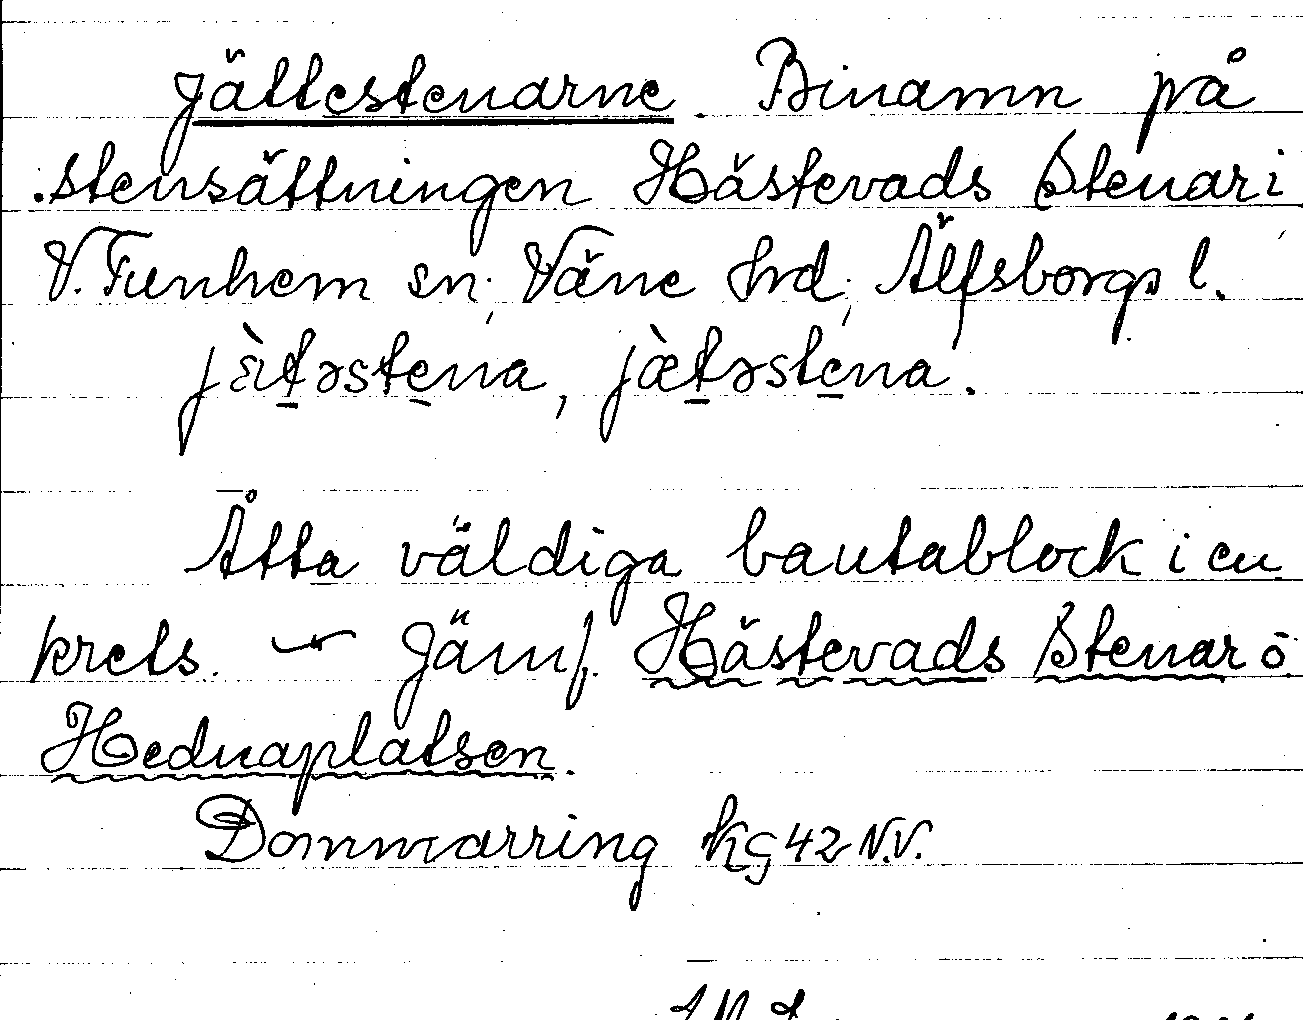 Jättestenarne. Binamn på
stensättningen Hästevads Stenar i
V. Tunhem sn, Väne hrd, Älfsborgs l.
jὰtəstena, jæ̀təstena.
Åtta väldiga bautablock i en
krets. — Jämf. Hästevads Stenar o
Hednaplatsen.
Dommarring kg 42 N.V.